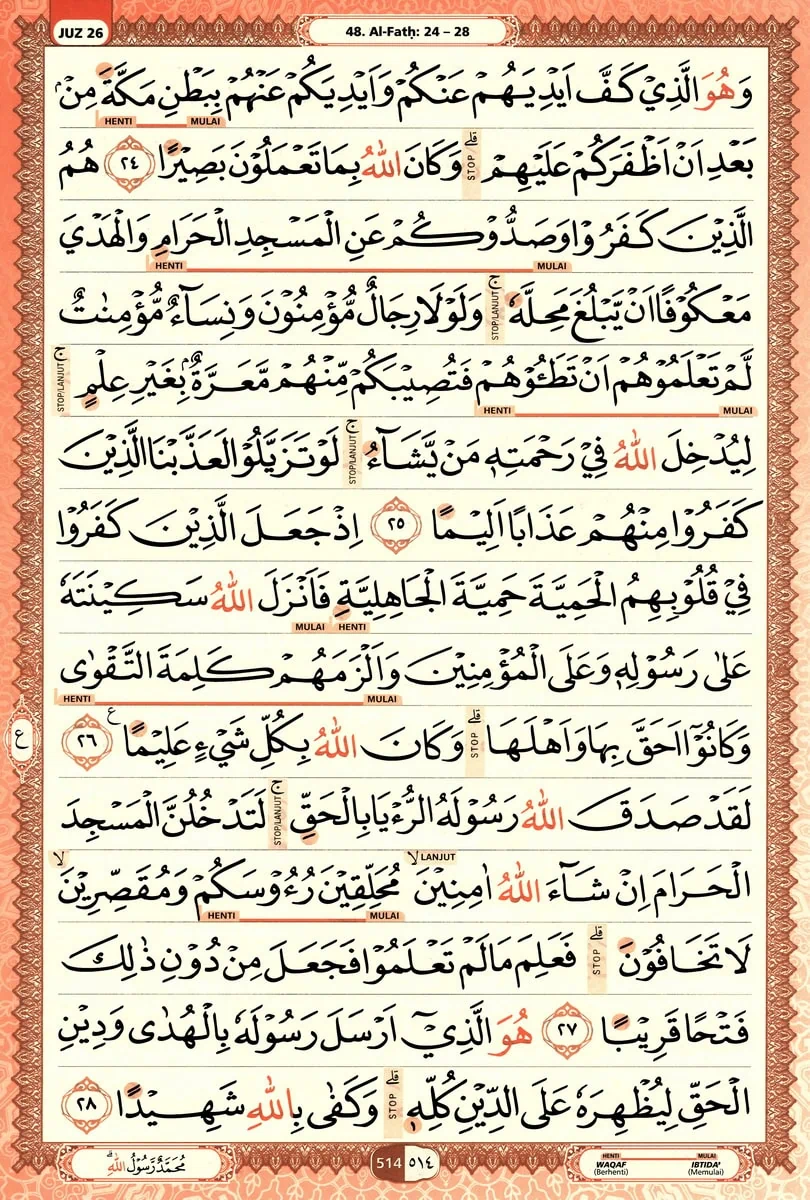 JUZ 26
48. Al-Fatḥ: 24 – 28
وَهُوَ الَّذِيْ كَفَّ اَيْدِيَهُمْ عَنْكُمْ وَاَيْدِيَكُمْ عَنْهُمْ بِبَطْنِ مَكَّةَ مِنْۢ
HENTI MULAI
بَعْدِ اَنْ اَظْفَرَكُمْ عَلَيْهِمْ ۗ STOP وَكَانَ اللّٰهُ بِمَا تَعْمَلُوْنَ بَصِيْرًا ٢٤ هُمُ
الَّذِيْنَ كَفَرُوْا وَصَدُّوْكُمْ عَنِ الْمَسْجِدِ الْحَرَامِ وَالْهَدْيَ
HENTI MULAI
مَعْكُوْفًا اَنْ يَّبْلُغَ مَحِلَّهٗ ۚ STOP/LANJUT وَلَوْلَا رِجَالٌ مُّؤْمِنُوْنَ وَنِسَاۤءٌ مُّؤْمِنٰتٌ
لَّمْ تَعْلَمُوْهُمْ اَنْ تَطَـُٔوْهُمْ فَتُصِيْبَكُمْ مِّنْهُمْ مَّعَرَّةٌ ۢبِغَيْرِ عِلْمٍ ۚ STOP/LANJUT
HENTI MULAI
لِيُدْخِلَ اللّٰهُ فِيْ رَحْمَتِهٖ مَنْ يَّشَاۤءُ ۚ STOP/LANJUT لَوْ تَزَيَّلُوْا لَعَذَّبْنَا الَّذِيْنَ
كَفَرُوْا مِنْهُمْ عَذَابًا اَلِيْمًا ٢٥ اِذْ جَعَلَ الَّذِيْنَ كَفَرُوْا
فِيْ قُلُوْبِهِمُ الْحَمِيَّةَ حَمِيَّةَ الْجَاهِلِيَّةِ فَاَنْزَلَ اللّٰهُ سَكِيْنَتَهٗ
MULAI HENTI
عَلٰى رَسُوْلِهٖ وَعَلَى الْمُؤْمِنِيْنَ وَاَلْزَمَهُمْ كَلِمَةَ التَّقْوٰى
HENTI MULAI
وَكَانُوْٓا اَحَقَّ بِهَا وَاَهْلَهَا ۗ STOP وَكَانَ اللّٰهُ بِكُلِّ شَيْءٍ عَلِيْمًا ع ٢٦
ع
لَقَدْ صَدَقَ اللّٰهُ رَسُوْلَهُ الرُّءْيَا بِالْحَقِّ ۚ STOP/LANJUT لَتَدْخُلُنَّ الْمَسْجِدَ
الْحَرَامَ اِنْ شَاۤءَ اللّٰهُ اٰمِنِيْنَ ۙ LANJUT مُحَلِّقِيْنَ رُءُوْسَكُمْ وَمُقَصِّرِيْنَ ۙ
HENTI MULAI
لَا تَخَافُوْنَ ۗ STOP فَعَلِمَ مَا لَمْ تَعْلَمُوْا فَجَعَلَ مِنْ دُوْنِ ذٰلِكَ
فَتْحًا قَرِيْبًا ٢٧ هُوَ الَّذِيْٓ اَرْسَلَ رَسُوْلَهٗ بِالْهُدٰى وَدِيْنِ
الْحَقِّ لِيُظْهِرَهٗ عَلَى الدِّيْنِ كُلِّهٖ ۗ STOP وَكَفٰى بِاللّٰهِ شَهِيْدًا ٢٨
مُحَمَّدٌ رَّسُوْلُ اللّٰهِ ۗ
514 ٥١٤
HENTI MULAI
WAQAF IBTIDA'
(Berhenti) (Memulai)